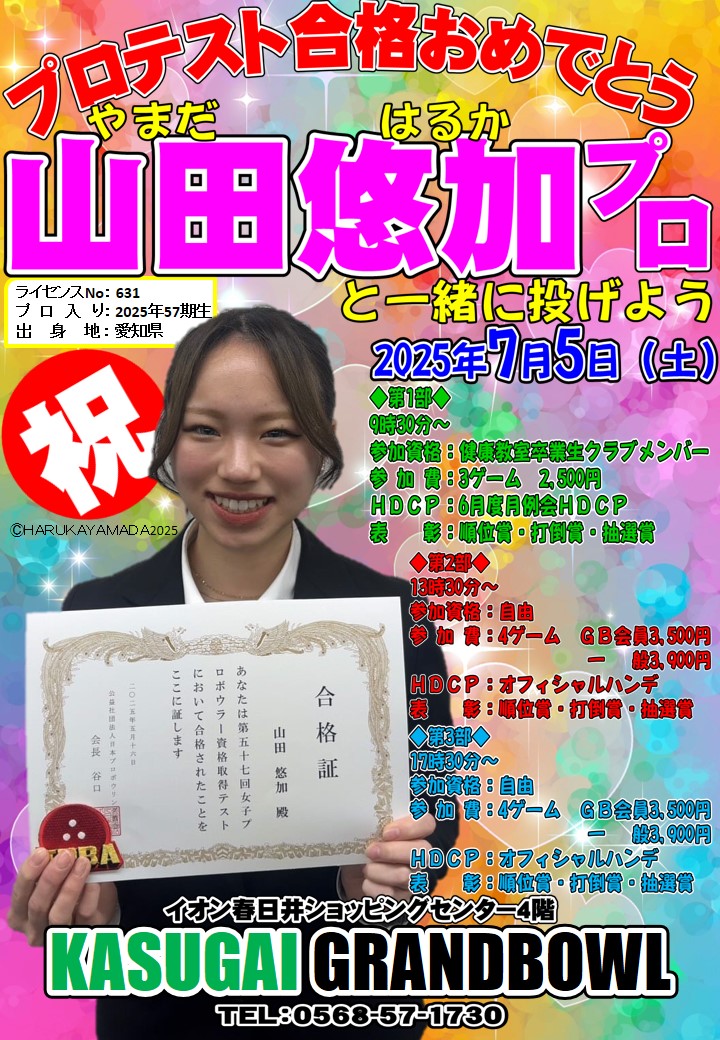 プロテスト合格おめでとう
やまだ はるか
山田悠加プロ
と一緒に投げよう
ライセンスNo: 631
プロ入り: 2025年57期生
出身地: 愛知県
2025年7月5日（土）
祝
◆第1部◆
9時30分～
参加資格：健康教室卒業生クラブメンバー
参加費：3ゲーム 2,500円
ＨＤＣＰ：6月度月例会ＨＤＣＰ
表彰：順位賞・打倒賞・抽選賞
ⒸHARUKAYAMADA2025
◆第2部◆
13時30分～
参加資格：自由
参加費：4ゲーム ＧＢ会員3,500円
一般3,900円
ＨＤＣＰ：オフィシャルハンデ
表彰：順位賞・打倒賞・抽選賞
◆第3部◆
17時30分～
参加資格：自由
参加費：4ゲーム ＧＢ会員3,500円
一般3,900円
ＨＤＣＰ：オフィシャルハンデ
表彰：順位賞・打倒賞・抽選賞
合格証
山田 悠加 殿
あなたは第五十七回女子プ
ロボウラー資格取得テスト
において合格されたことを
ここに証します
二〇二五年五月十六日
公益社団法人日本プロボウリング
会長 谷口
JPBA
イオン春日井ショッピングセンター4階
KASUGAI GRANDBOWL
TEL:0568-57-1730